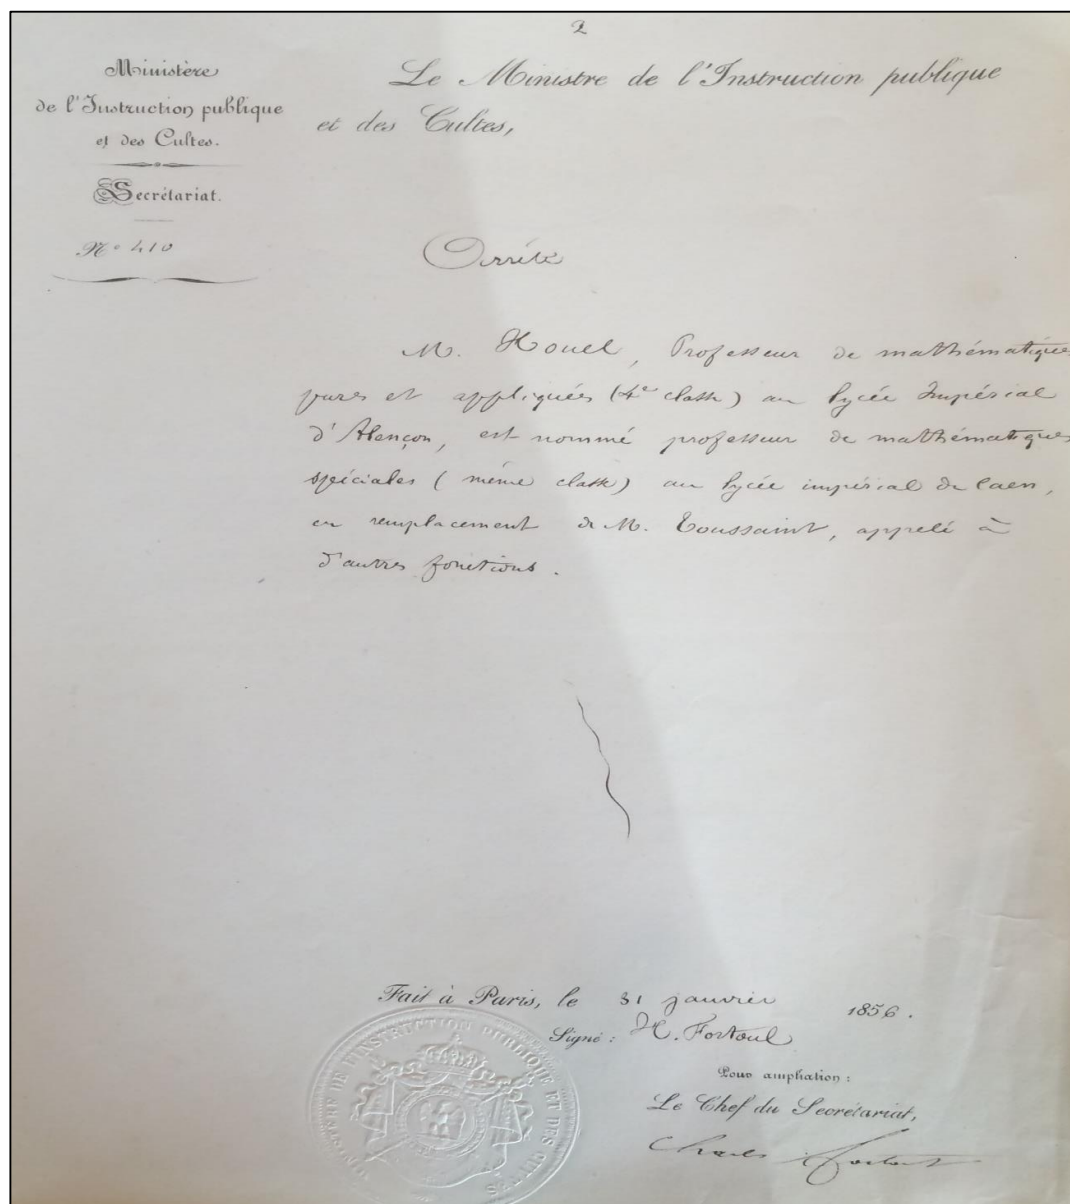 2
Ministère
de l'Instruction publique
et des Cultes.
Secrétariat.
N° 410
Le Ministre de l'Instruction publique
et des Cultes,
Arrête
M. Houel, Professeur de mathématiques
pures et appliquées (4e classe) au lycée Impérial
d'Alençon, est nommé professeur de mathématiques
spéciales (même classe) au lycée impérial de Caen,
en remplacement de M. Toussaint, appelé à
d'autres fonctions.
Fait à Paris, le 31 janvier 1856.
Signé : H. Fortoul
Pour ampliation :
Le Chef du Secrétariat,
Charles Fortoul
MINISTÈRE DE L'INSTRUCTION PUBLIQUE ET DES CULTES